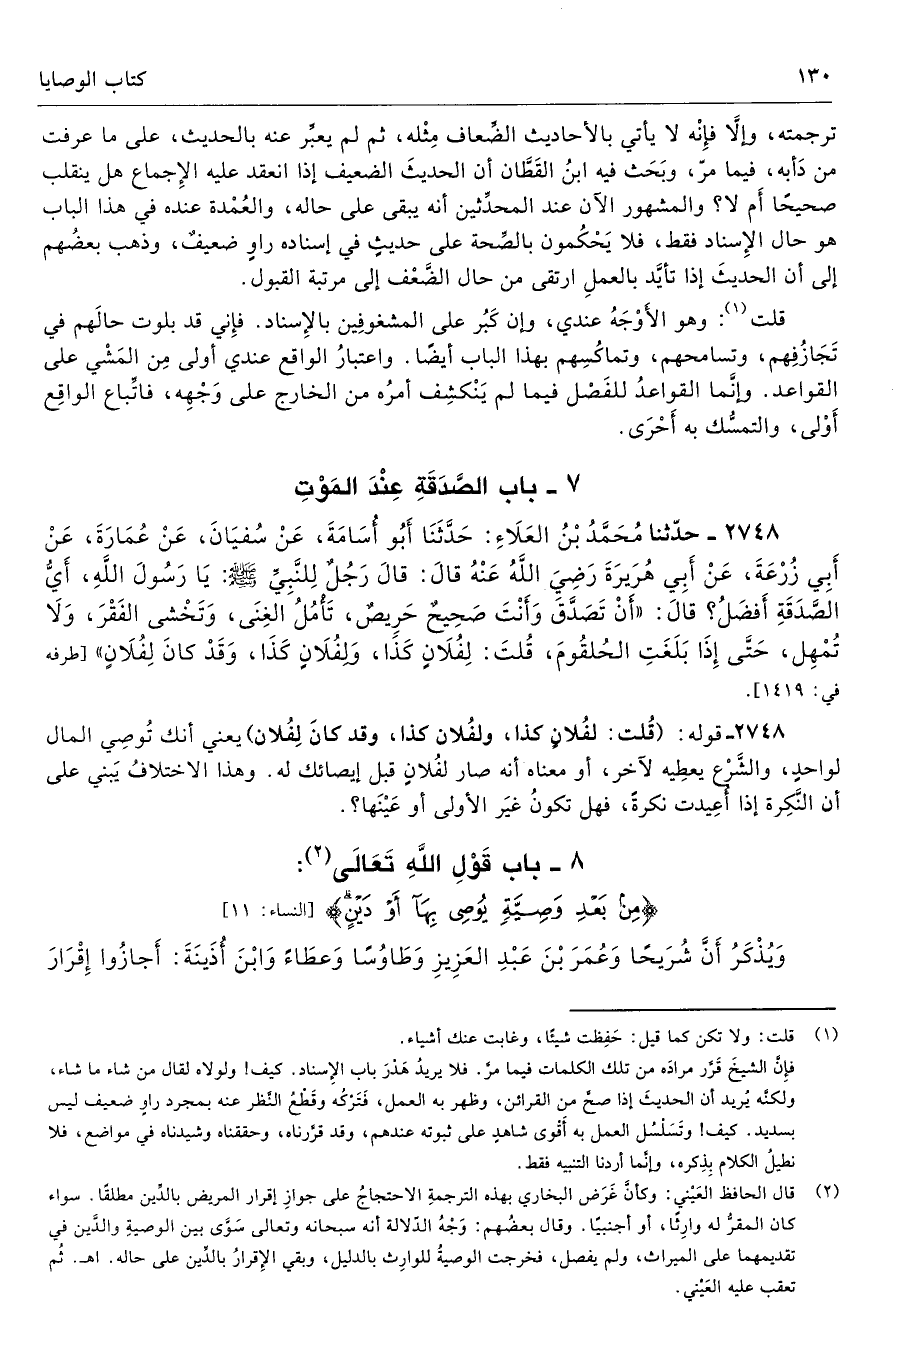 ١٣٠ كتاب الوصايا
ترجمته، وإلَّا فإِنْه لا يأتي بالأحاديث الضِّعاف مِثْله، ثم لم يعبِّر عنه بالحديث، على ما عرفت
من دَأْبه، فيما مرّ، وبَحَث فيه ابنُ القَطَّان أن الحديثَ الضعيف إذا انعقد عليه الإِجماع هل ينقلب
صحيحًا أم لا؟ والمشهور الآن عند المحدِّثين أنه يبقى على حاله، والعُمْدة عنده في هذا الباب
هو حال الإِسناد فقط، فلا يَحْكُمون بالصِّحة على حديثٍ في إسناده راوٍ ضعيفٌ، وذهب بعضُهم
إلى أن الحديثَ إذا تأيَّد بالعملِ ارتقى من حال الضَّعْف إلى مرتبة القبول.
قلت(١): وهو الأَوْجَهُ عندي، وإن كَبُر على المشغوفِين بالإِسناد. فإِني قد بلوت حالَهم في
تَجَازُفِهم، وتسامحهم، وتماكُسِهم بهذا الباب أيضًا. واعتبارُ الواقع عندي أولى مِن المَشْي على
القواعد. وإنَّما القواعدُ للفَصْل فيما لم يَنْكشِف أمرُه من الخارج على وَجْهِه، فاتِّباع الواقِع
أَوْلى، والتمسُّك به أَحْرَى.
٧ ـ باب الصَّدَقَةِ عِنْدَ المَوْتِ
٢٧٤٨ ـ حدّثنا مُحَمَّدُ بْنُ العَلَاءِ: حَدَّثَنَا أَبُو أُسَامَةَ، عَنْ سُفيَانَ، عَنْ عُمَارَةَ، عَنْ
أَبِي زُرْعَةَ، عَنْ أَبِي هُرَيرَةَ رَضِيَ اللَّهُ عَنْهُ قالَ: قالَ رَجُلٌ لِلنَّبِيِّ ﷺ: يَا رَسُولَ اللَّهِ، أَيُّ
الصَّدَقَةِ أَفضَلُ؟ قالَ: «أَنْ تَصَدَّقَ وَأَنْتَ صَحِيحٌ حَرِيصٌ، تَأْمُلُ الغِنَى، وَتَخْشى الفَقْرَ، وَلَا
تُمْهِل، حَتَّى إِذَا بَلَغَتِ الحُلقُومَ، قُلتَ: لِفُلَانٍ كَذَا، وَلِفُلَانٍ كَذَا، وَقَدْ كانَ لِفُلَانٍ» [طرفه
في: ١٤١٩].
٢٧٤٨ـ قوله: (قُلت: لفُلانٍ كذا، ولفُلان كذا، وقد كانَ لِفُلان) يعني أنك تُوصِي المال
لواحدٍ، والشَّرْع يعطِيه لآخر، أو معناه أنه صار لفُلانٍ قبل إيصائك له. وهذا الاختلافُ يَبني على
أن النَّكِرة إذا أُعِيدت نكرةً، فهل تكونُ غيَر الأولى أو عَيْنَها؟.
٨ ـ باب قَوْلِ اللَّهِ تَعَالَى(٢):
﴿مِنْ بَعْدِ وَصِيَّةٍ يُوصِى بِهَآ أَوْ دَيْنٍ﴾ [النساء: ١١]
وَيُذْكَرُ أَنَّ شُرَيحًا وَعُمَرَ بْنَ عَبْدِ العَزِيزِ وَطَاوُسًا وَعطَاءً وَابْنَ أُذَينَةَ: أَجازُوا إِقْرَارَ
(١) قلت: ولا تكن كما قيل: حَفِظت شيئًا، وغابت عنك أشياء.
فإنَّ الشيخَ قَرَّر مرادَه من تلك الكلمات فيما مرَّ. فلا يريدُ هَدْرَ باب الإِسناد. كيف! ولولاه لقال من شاء ما شاء،
ولكنَّه يُريد أن الحديثَ إذا صحَّ من القرائن، وظهر به العمل، فَتَرْكُه وقَطْعُ النَّظر عنه بمجرد راوٍ ضعيف ليس
بسديد. كيف! وتَسَلْسُل العمل به أَقْوى شاهدٍ على ثبوته عندهم، وقد قرَّرناه، وحققناه وشيدناه في مواضع، فلا
نطيلُ الكلام بِذِكره، وإنَّما أردنا التنبيه فقط.
(٢) قال الحافظ العَيْني: وكأنَّ غَرَض البخاري بهذه الترجمةِ الاحتجاجُ على جوازِ إقرار المريض بالدَّين مطلقًا. سواء
كان المقرُّ له وارثًا، أو أجنبيًا. وقال بعضُهم: وَجْهُ الدّلالة أنه سبحانه وتعالى سَوَّى بين الوصيةِ والدَّين في
تقديمهما على الميراث، ولم يفصل، فخرجت الوصيةُ للوارِث بالدليل، وبقي الإقرارُ بالدَّين على حاله. اهـ. ثُم
تعقب عليه العَيْني.